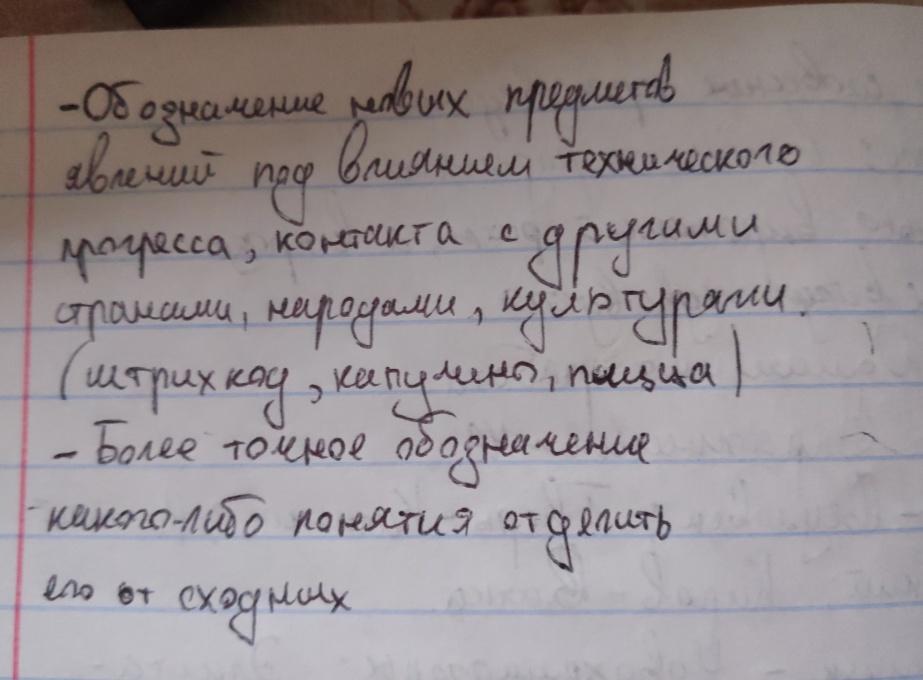 - Обозначение новых предметов
явлений под влиянием технического
прогресса, контакта с другими
странами, народами, культурами.
(штрихкод, капучино, пицца)
- Более точное обозначение
какого-либо понятия отделить
его от сходных